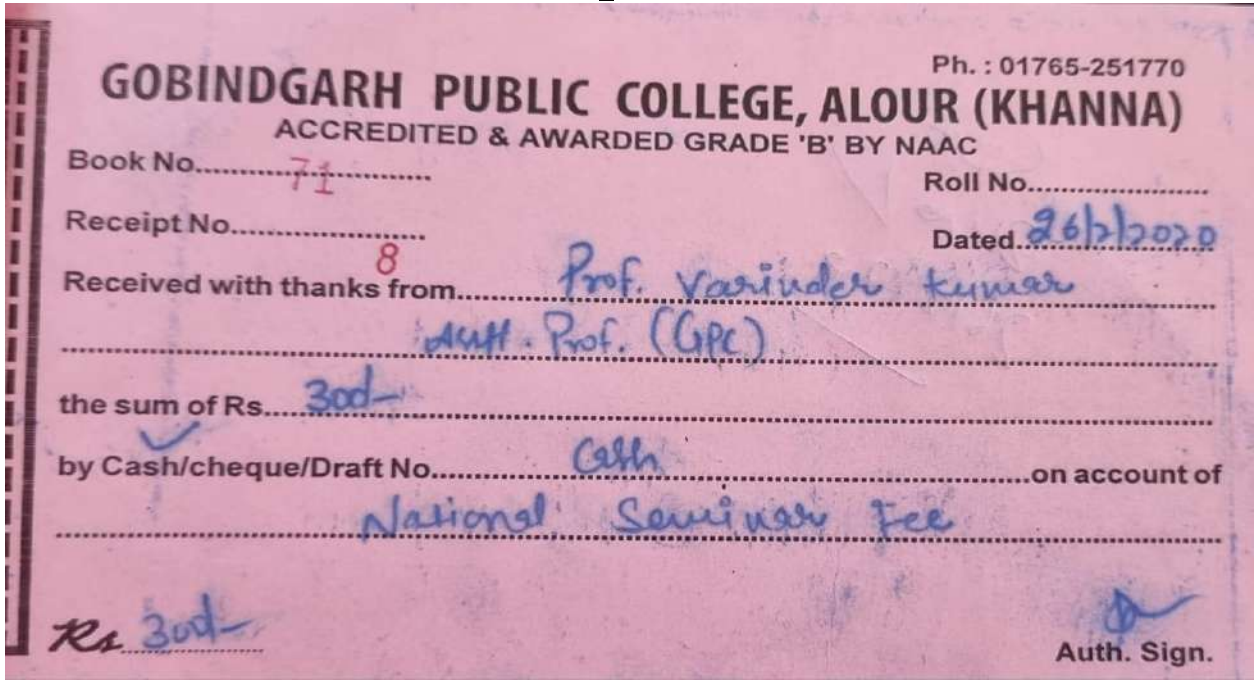 Ph. : 01765-251770
GOBINDGARH PUBLIC COLLEGE, ALOUR (KHANNA)
ACCREDITED & AWARDED GRADE 'B' BY NAAC
Book No. 71
Roll No.
Receipt No. 8
Dated. 26/2/2020
Received with thanks from Prof. Varinder Kumar
Prof. (GPC)
the sum of Rs. 300/-
by Cash/cheque/Draft No. Cash on account of
National Seminar Fee
Rs 300/-
Auth. Sign.